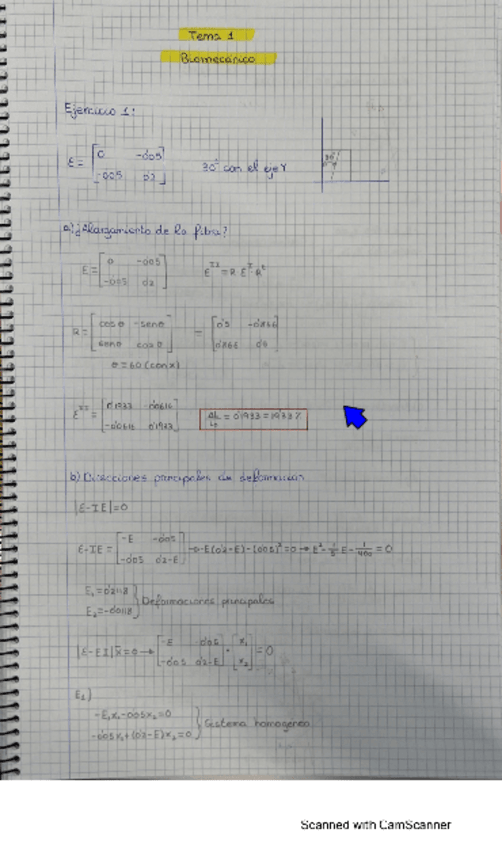 Tema 1
Biomecánica
Ejercicio 1:
E = [0 -0'05; -0'05 0'2] 30° con el eje Y
a) ¿Alargamiento de la fibra?
E = [0 -0'05; -0'05 0'2] E^II = R E^I R^t
R = [cos θ -sen θ; sen θ cos θ] = [0'5 -0'866; 0'866 0'5]
θ = 60 (con x)
E^II = [0'1933 0'0616; -0'0616 0'1933] ΔL/L₀ = 0'1933 = 19'33 %
b) Direcciones principales de deformación
|E-IE| = 0
E-IE = [-E -0'05; -0'05 0'2-E] → -E(0'2-E)-(0'05)² = 0 → E² - 1/5 E - 1/400 = 0
E₁ = 0'2118
E₂ = -0'0118 } Deformaciones principales
|E-EI| x̄ = 0 → [-E -0'05; -0'05 0'2-E] · [x₁; x₂] = 0
E₁)
-E₁x₁ - 0'05x₂ = 0
-0'05x₁ + (0'2-E)x₂ = 0 } Sistema homogéneo
Scanned with CamScanner